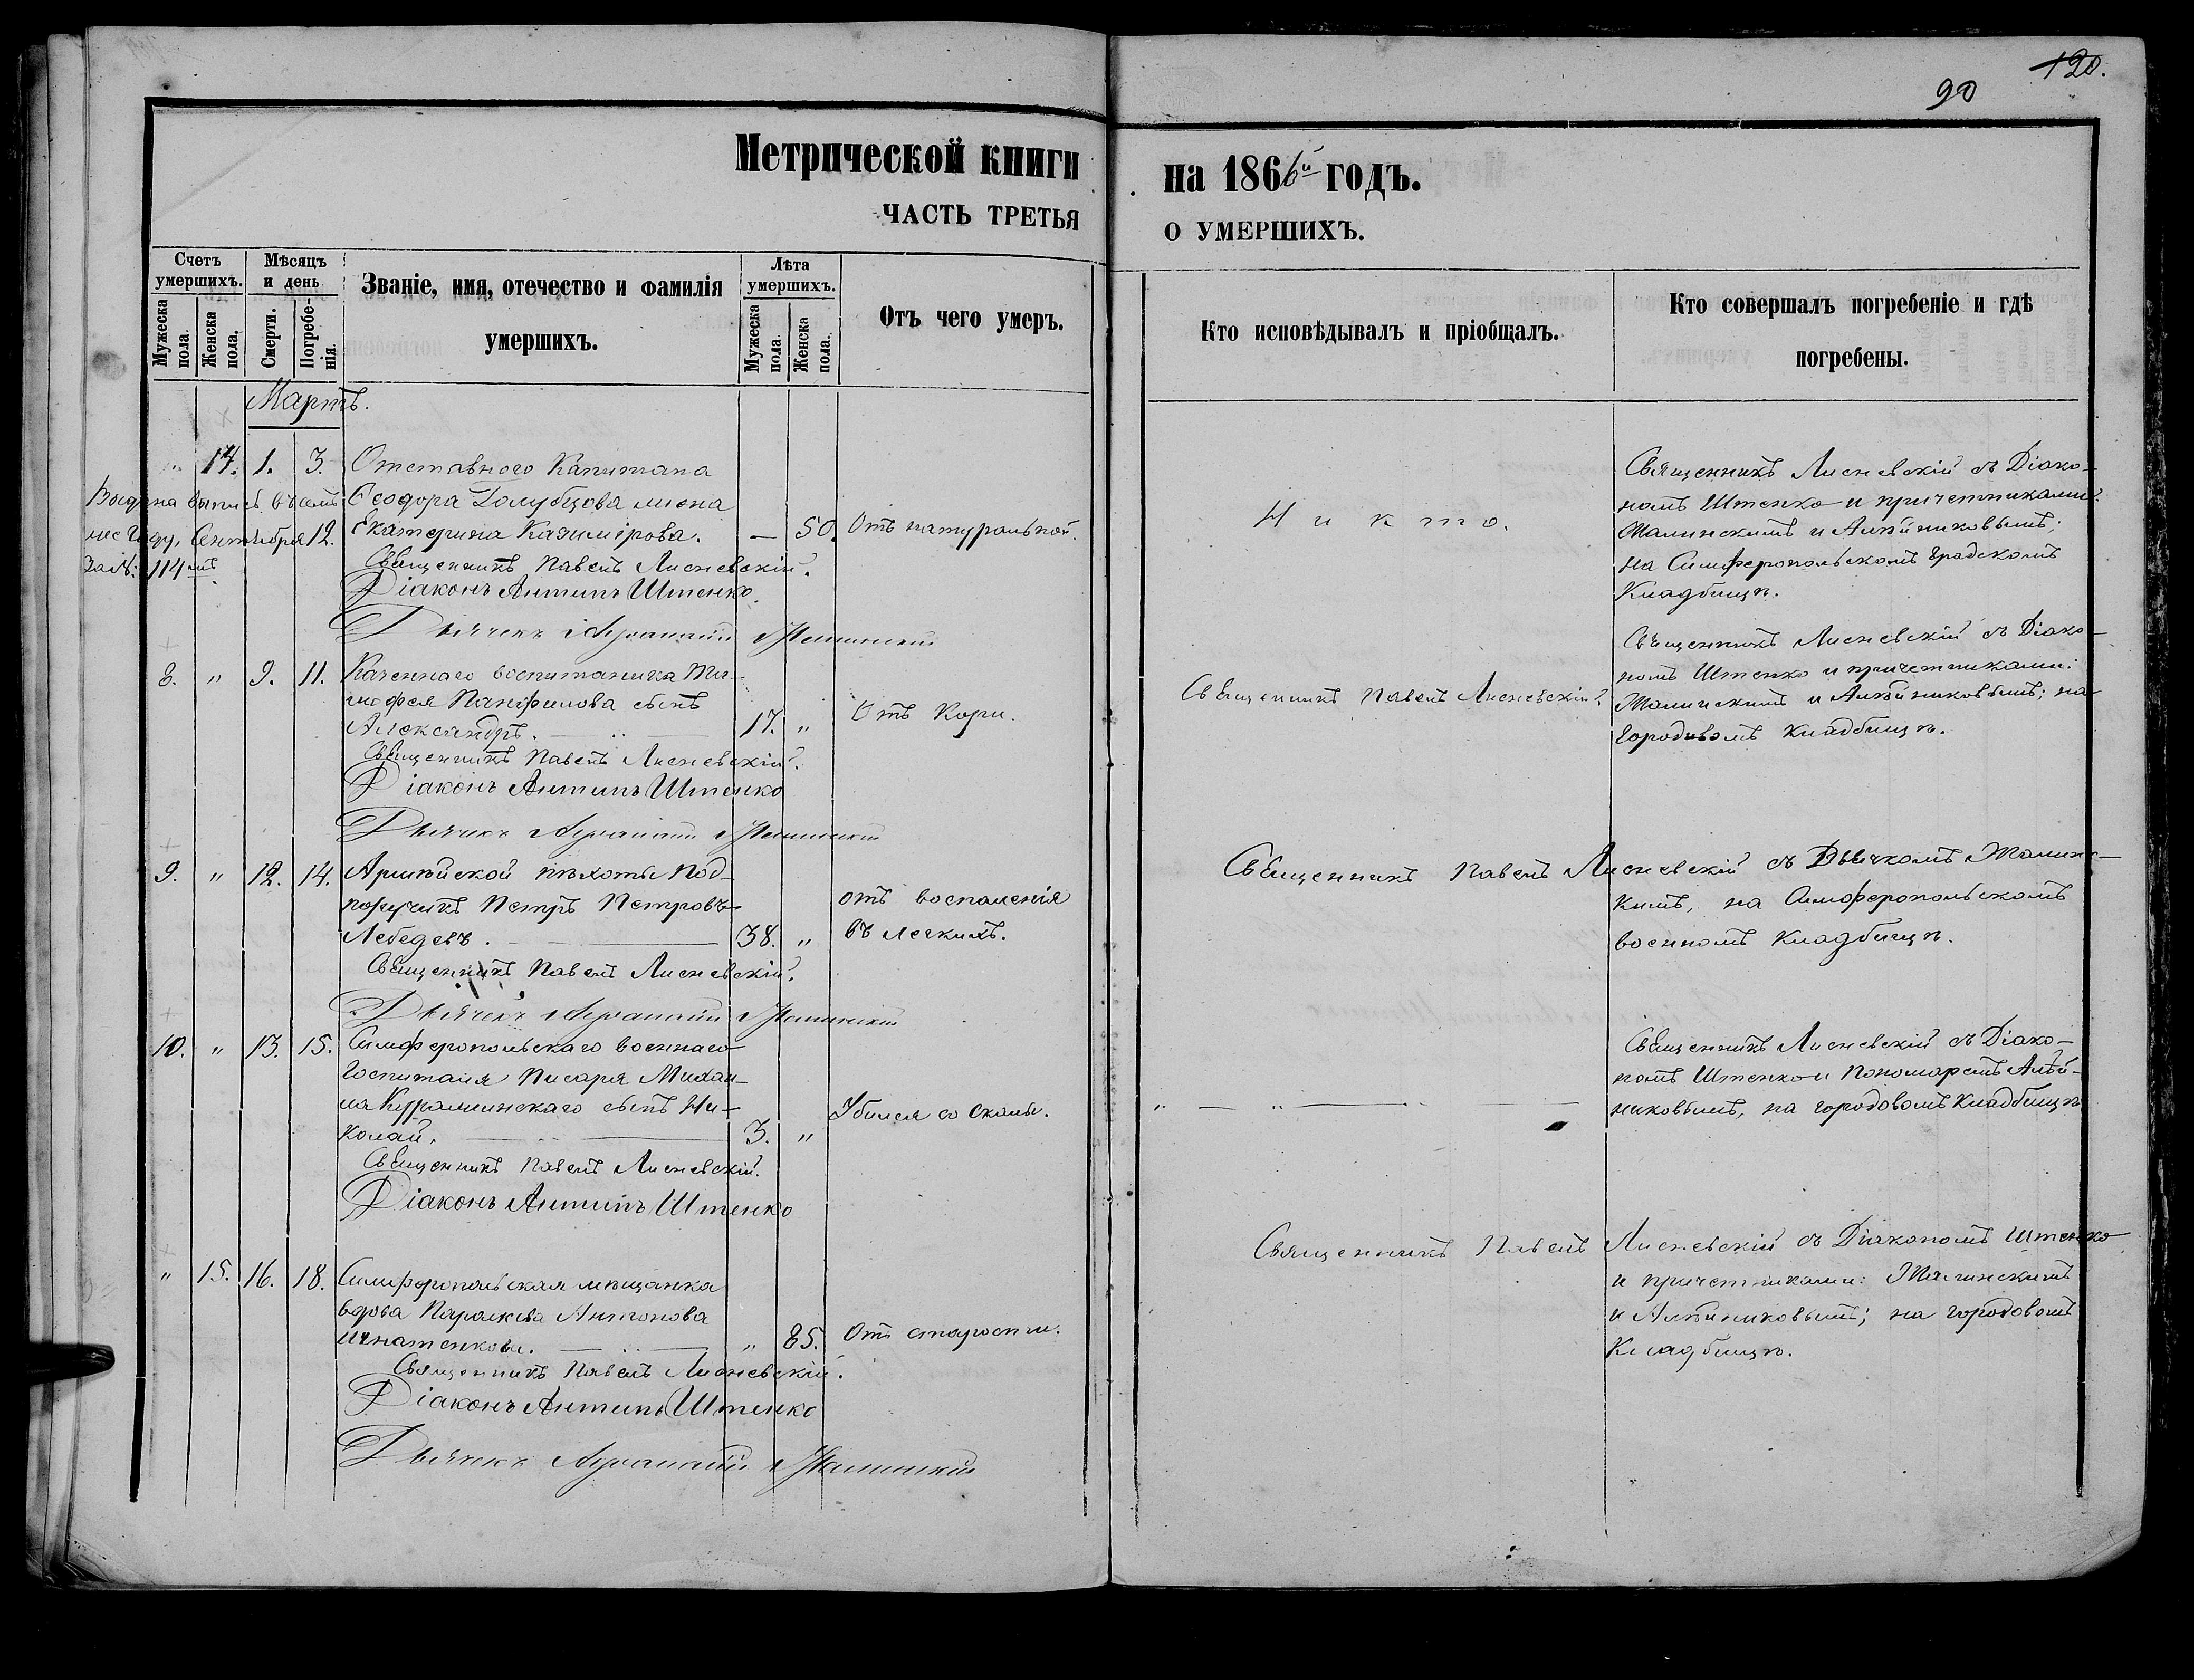 120.
90
Метрической книги на 1866й годъ.
ЧАСТЬ ТРЕТЬЯ О УМЕРШИХЪ.
Счетъ умершихъ.
Мужеска пола.
Женска пола.
Мѣсяцъ и день
Смерти.
Погребенія.
Званіе, имя, отечество и фамилія
умершихъ.
Лѣта умершихъ.
Мужеска пола.
Женска пола.
Отъ чего умеръ.
Кто исповѣдывалъ и пріобщалъ.
Кто совершалъ погребеніе и гдѣ
погребены.
Мартъ.
" 14. 1. 3. Отставного Капитана
Ѳеодора Голубцова жена
Екатерина Казимірова. — 50. Отъ натуральной.
Священникъ Павелъ Лисневскій.
Діаконъ Антипъ Штенко.
Дьячекъ
Выдана выпись въ семъ
же году, Сентября 12.
за №: 114мъ
Никто.
Священникъ Лисневскій съ Діако-
номъ Штенко и причетниками:
и
на Симферопольскомъ градскомъ
Кладбищѣ.
8. " 9. 11. Казеннаго воспитаника Ти-
мофея Панфилова сынъ
Александръ. 17. " Отъ Кори.
Священникъ Павелъ Лисневскій.
Діаконъ Антипъ Штенко
Дьячекъ
Священникъ Павелъ Лисневскій.
Священникъ Лисневскій съ Діако-
номъ Штенко и причетниками:
и на
городовомъ кладбищѣ.
9. " 12. 14. Армѣйской пѣхоты Под-
поручикъ Петръ Петровъ
Лебедевъ. 38. " отъ воспаленія
въ легкихъ.
Священникъ Павелъ Лисневскій.
Дьячекъ
Священникъ Павелъ Лисневскій съ Дьячкомъ
на Симферопольскомъ
военномъ кладбищѣ.
10. " 13. 15. Симферопольскаго военнаго
госпиталя Писаря Михаи-
ла сынъ Ни-
колай. 3. " Убился со скалы.
Священникъ Павелъ Лисневскій.
Діаконъ Антипъ Штенко
Священникъ Лисневскій съ Діако-
номъ Штенко и Пономаремъ Алѣй-
никовымъ, на городовомъ Кладбищѣ
" 15. 16. 18. Симферопольская мѣщанка
вдова Параскева Антонова
Игнатенкова. " 85. Отъ старости.
Священникъ Павелъ Лисневскій.
Діаконъ Антипъ Штенко
Дьячекъ
Священникъ Павелъ Лисневскій съ Діакономъ Штенко
и причетниками:
и Алѣйниковымъ; на городовомъ
Кладбищѣ.